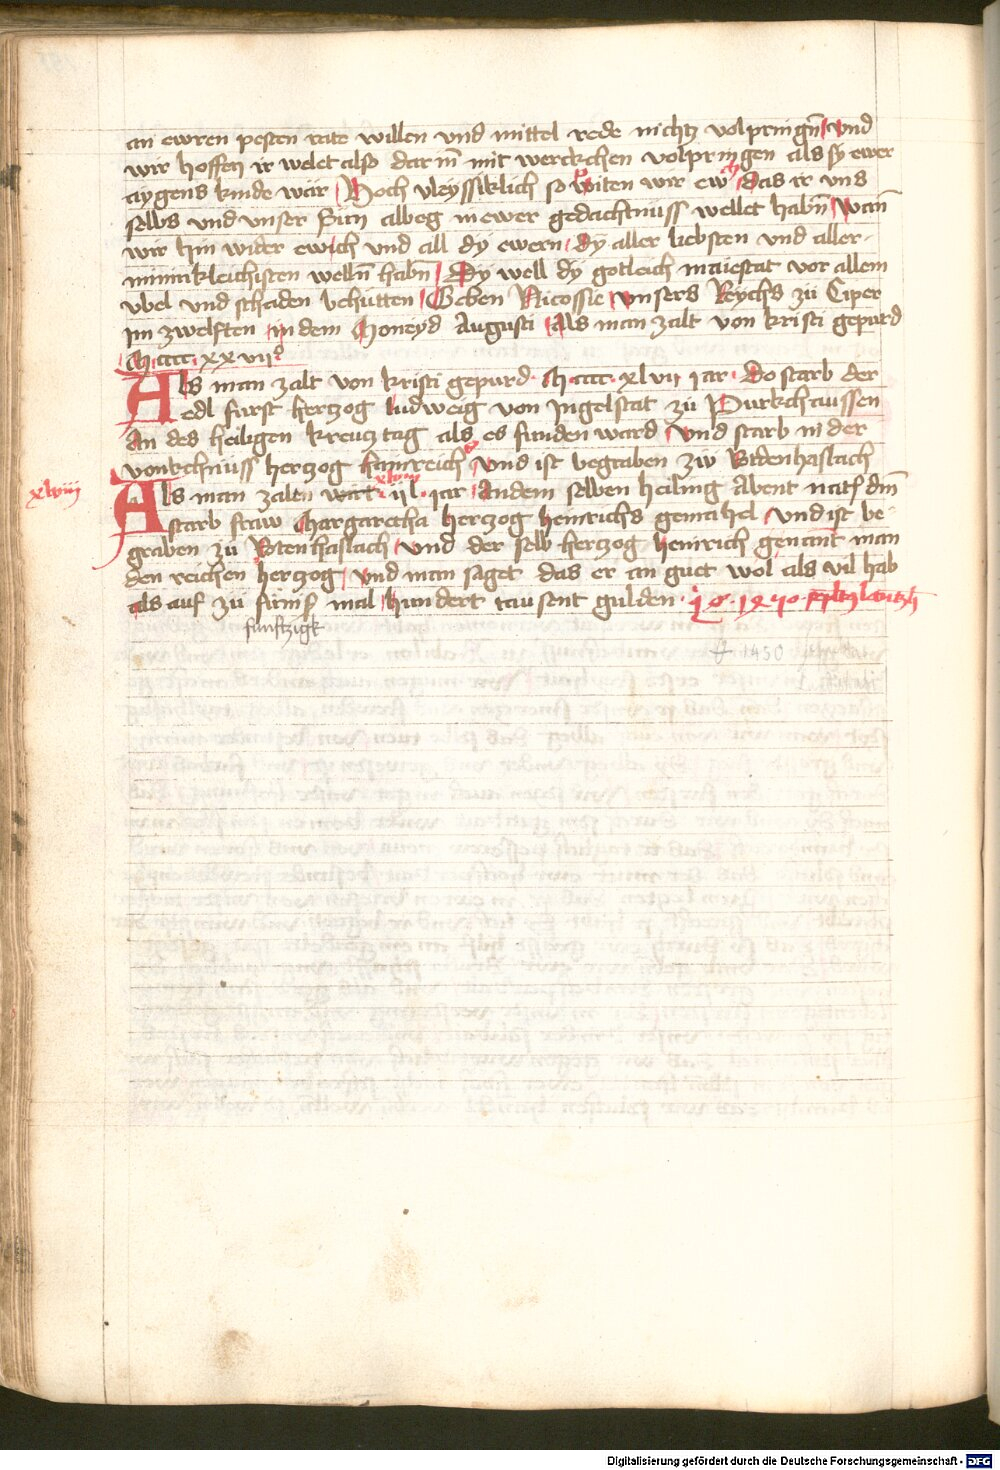 an ewren pesten rate willen vnd mittel rede nichtz volpringn̄ vnd
wir hoffen ir welet also darin̄ mit werckchen volpringen als sy ewer
aygens kinde wär Doch vleyssiklich so piten wir ew das ir vns
selbs vnd vnser Sun albeg in ewer gedachtnuss wellet habn̄ Wan̄
wir hin wider ewch vnd all dy ewern dy aller liebsten vnd aller
mynnikleichisten welln̄ habn̄ Dy well dy gotleich maiestat vor allem
vbel vnd schaden behutten Geben Nicossie vnsers Reychs zu Ciper
im zwelften in dem Moneyd Augusti Als man zalt von kristi gepurd
M cccc xxvii⁰
Als man zalt von kristi gepurd M cccc xlvii iar Do starb der
edl furst hertzog ludweig von Ingelstat zu Purkchaussen
An des heiligen kreutz tag als es funden ward vnd starb in der
vonkchnuss hertzog hainreich vnd ist begraben zw Ratenhaslach
xlviii
Als man zalen iar An dem selben heiling Abent
starb fraw Margaretha hertzog heinrichs gemahel vnd ist be-
graben zu Rotenhaslach vnd der selb hertzog heinrich genant man
den reichen hertzog vnd man saget das er an guet wol als vil hab
als auf zu funf mal hundert tausent gulden
funftzigk
1450
Digitalisierung gefördert durch die Deutsche Forschungsgemeinschaft - DFG